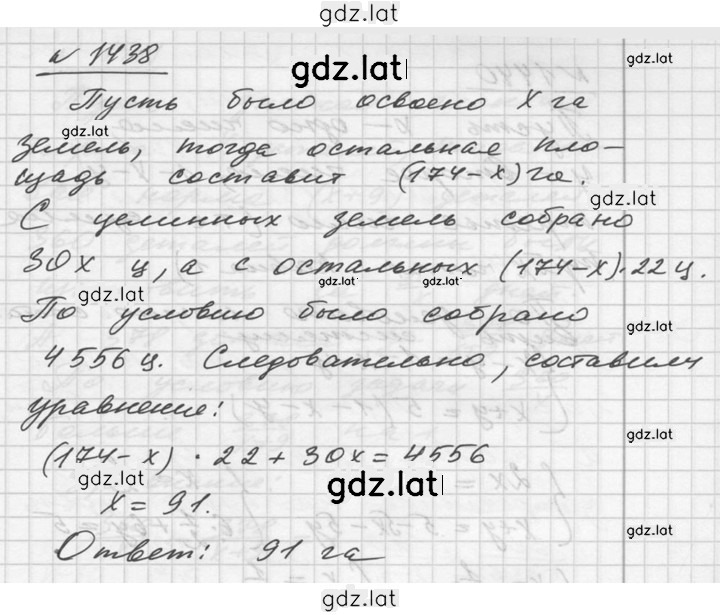 gdz.lat
№ 1438
gdz.lat
gdz.lat
Пусть было освоено х га
gdz.lat
земель, тогда остальная пло-
щадь составит (174-х) га.
gdz.lat
С целинных земель собрано
30х ц, а с остальных (174-х)·22 ц.
gdz.lat gdz.lat
gdz.lat
По условию было собрано
gdz.lat
4556 ц. Следовательно, составим
уравнение:
gdz.lat
(174-х) · 22 + 30х = 4556
gdz.lat gdz.lat
х = 91.
gdz.lat
Ответ: 91 га
gdz.lat